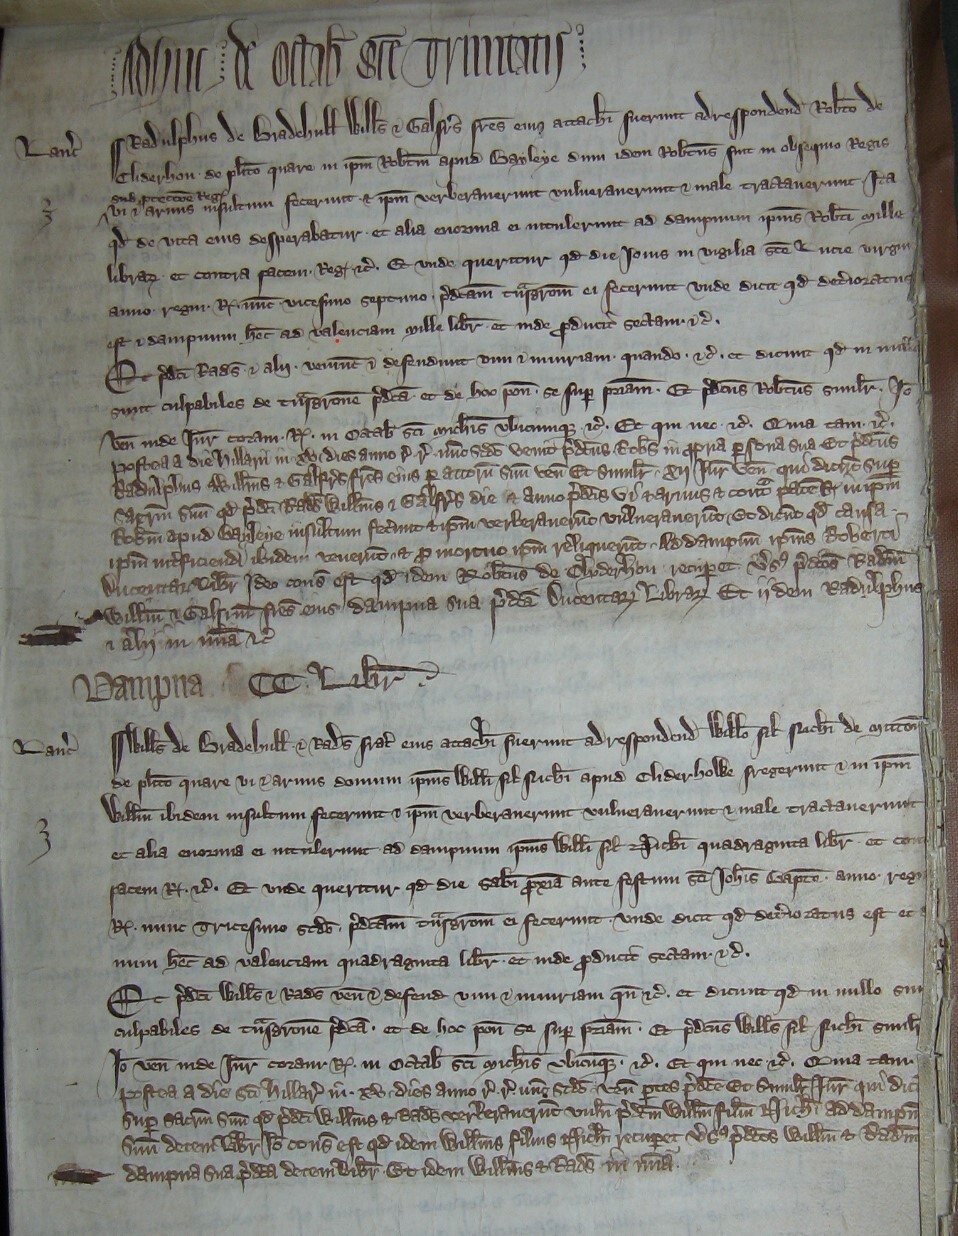 Adhuc de Octab sce Trinitatis
Lanc
Radulphus de Bradehull Wills & Galfrs fres eius attach fuerunt ad respondend Robto de
Cliderhou de plito quare in ipm Robtm apud Bayleye dum idem Robtus fuit in obsequio Regis
sub proteccoe Reg
vi & armis insultum fecerunt & ipm verberauerunt vulnerauerunt & male tractauerunt Ita
qd de vita eius desperabatur et alia enormia ei intulerunt ad dampnum ipius Robti Mille
librar et contra pacem Reg &c. Et vnde queritur qd die Iouis in vigilia sce Lucie virgin
anno regni R. nunc vicesimo septimo pdcam tnsgrom ei fecerunt vnde dicit qd deterioratus
est & dampnum het ad valenciam Mille libr et inde producit sectam &c.
Et pdci Rads & alij veniunt & defendunt vim & iniuriam quando &c. et dicunt qd in nullo
sunt culpabiles de tnsgressione pdca et de hoc pon se sup priam Et pdcus Robtus similr Io
ven inde Iur coram R. in Octab sci Michis vbicumque &c. Et qui nec &c. Quia tam &c.
postea a die Hillarii in xv dies anno r. r. nuc scdo venit pdcus Robs in propria persona sua Et pdcus
Radulphus Willms & Galfrs fres eius per attorn suu ven Et similr xij Iur ven qui dicut sup
sacrm suu qd pdci Rads Willms & Galfrs die & anno pdcis vi & armis & contra pacem R. in ipm
Robtm apud Bayleye insultum fecerut & ipm verberauerut vulnerauerut Et dicut qd causa
ipm interficiendi ibidem venerut & pro mortuo ipm reliquerut Ad dampnu ipius Roberti
Ducentar Libr Ideo cons est qd idem Robtus de Clyderhou recuperet vers pdcos Radm
Willm & Galfrm fres eius dampna sua pdca Ducentar Librar Et iidem Radulphus
& alij in mia &c
Dampna CC Libr
Lanc
Wills de Bradehull & Rads frat eius attach fuerunt ad respondend Willo fil Richi de Mitton
de plito quare vi & armis domum ipius Willi fil Richi apud Cliderhowe fregerunt & in ipm
Willm ibidem insultum fecerunt & ipm verberauerunt vulnerauerunt & male tractauerunt
et alia enormia ei intulerunt ad dampnum ipius Willi fil Richi quadraginta libr et con
pacem R. &c. Et vnde queritur qd die Sabi proxia ante festum sci Iohis Bapte anno regn
R. nunc Tricesimo scdo pdcam tnsgrom ei fecerunt vnde dicit qd deterioratus est et
num het ad valenciam quadraginta libr et inde producit sectam &c.
Et pdci Wills & Rads ven & defend vim & iniuriam qn &c. et dicunt qd in nullo sun
culpabiles de tnsgressione pdca et de hoc pon se sup priam Et pdcus Wills fil Richi simili
Io ven inde Iur coram R. in Octab sci Michis vbicumque &c. Et qui nec &c. Quia tam
postea a die sci Hillar in xv dies anno r. r. nuc scdo ven ptes pdce Et similr Iur qui dicu
sup sacrm suu qd pdci Willms & Rads verberauerut vuln pdcm Willm filiu Richi ad dampn
suu decem libr Io cons est qd idem Willms filius Richi recuperet vers pdcos Willm & Radm
dampna sua pdca decem libr Et idem Willms & Rads in mia